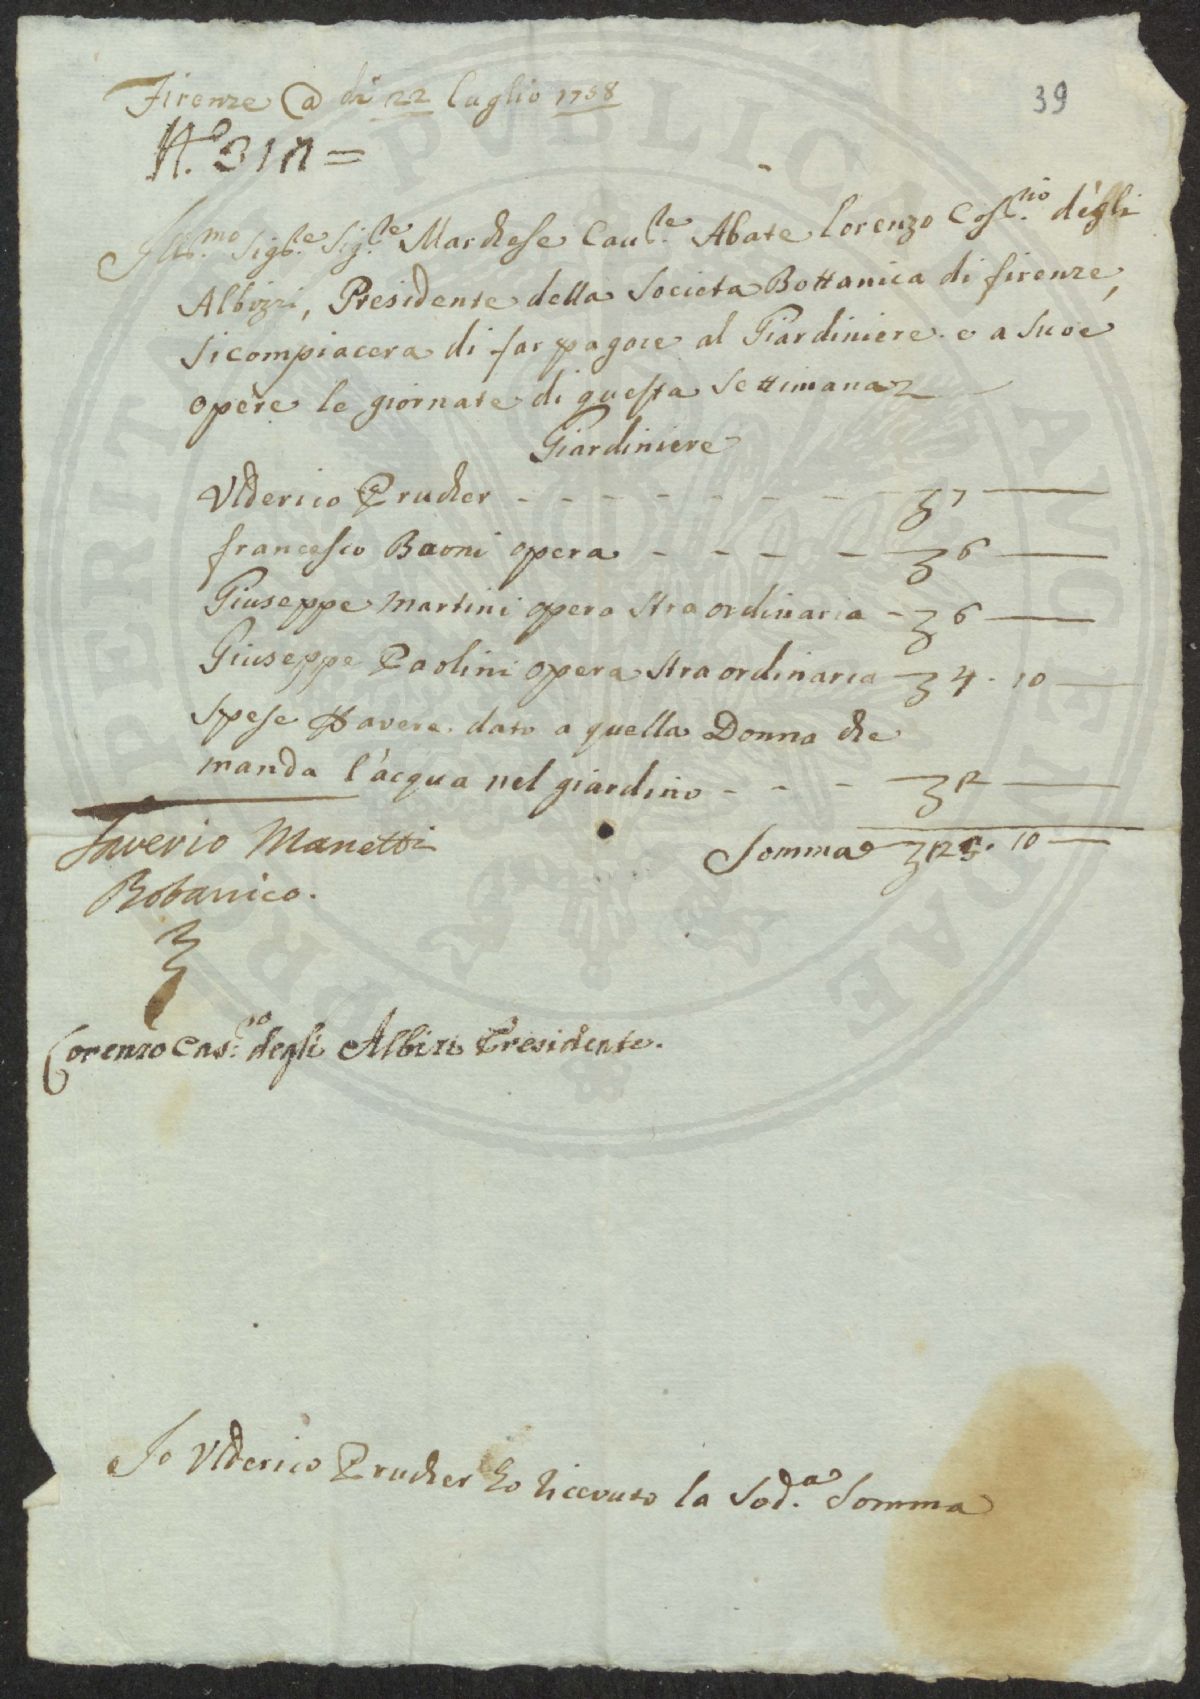 39
Firenze @ di 22 luglio 1758
N.o 311 =
Ill.mo Sig.re Sig.re Marchese Cav.re Abate Lorenzo Cas.nio degli
Albizzi, Presidente della Societa Bottanica di firenze,
si compiacera di far pagare al Giardiniere e a sue
opere le giornate di questa Settimana
Giardiniere
Ulderico Prucher - - - - - - - - 7
francesco Baoni opera - - - - 6
Giuseppe Martini opera straordinaria - 6
Giuseppe Paolini opera straordinaria - 4 . 10
spese P avere dato a quella Donna che
manda l'acqua nel giardino - - - 2
Somma 25 . 10
Saverio Manetti
Botanico.
Lorenzo Cas.no degli Albizi Presidente.
Io Ulderico Prucher ho ricevuto la Sod.a Somma
PROPRIETA PUBBLICA